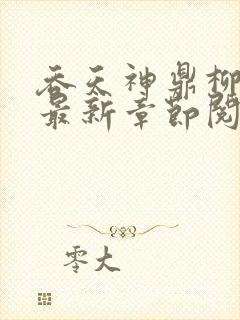 吞天神鼎柳
最新章节阅
零大